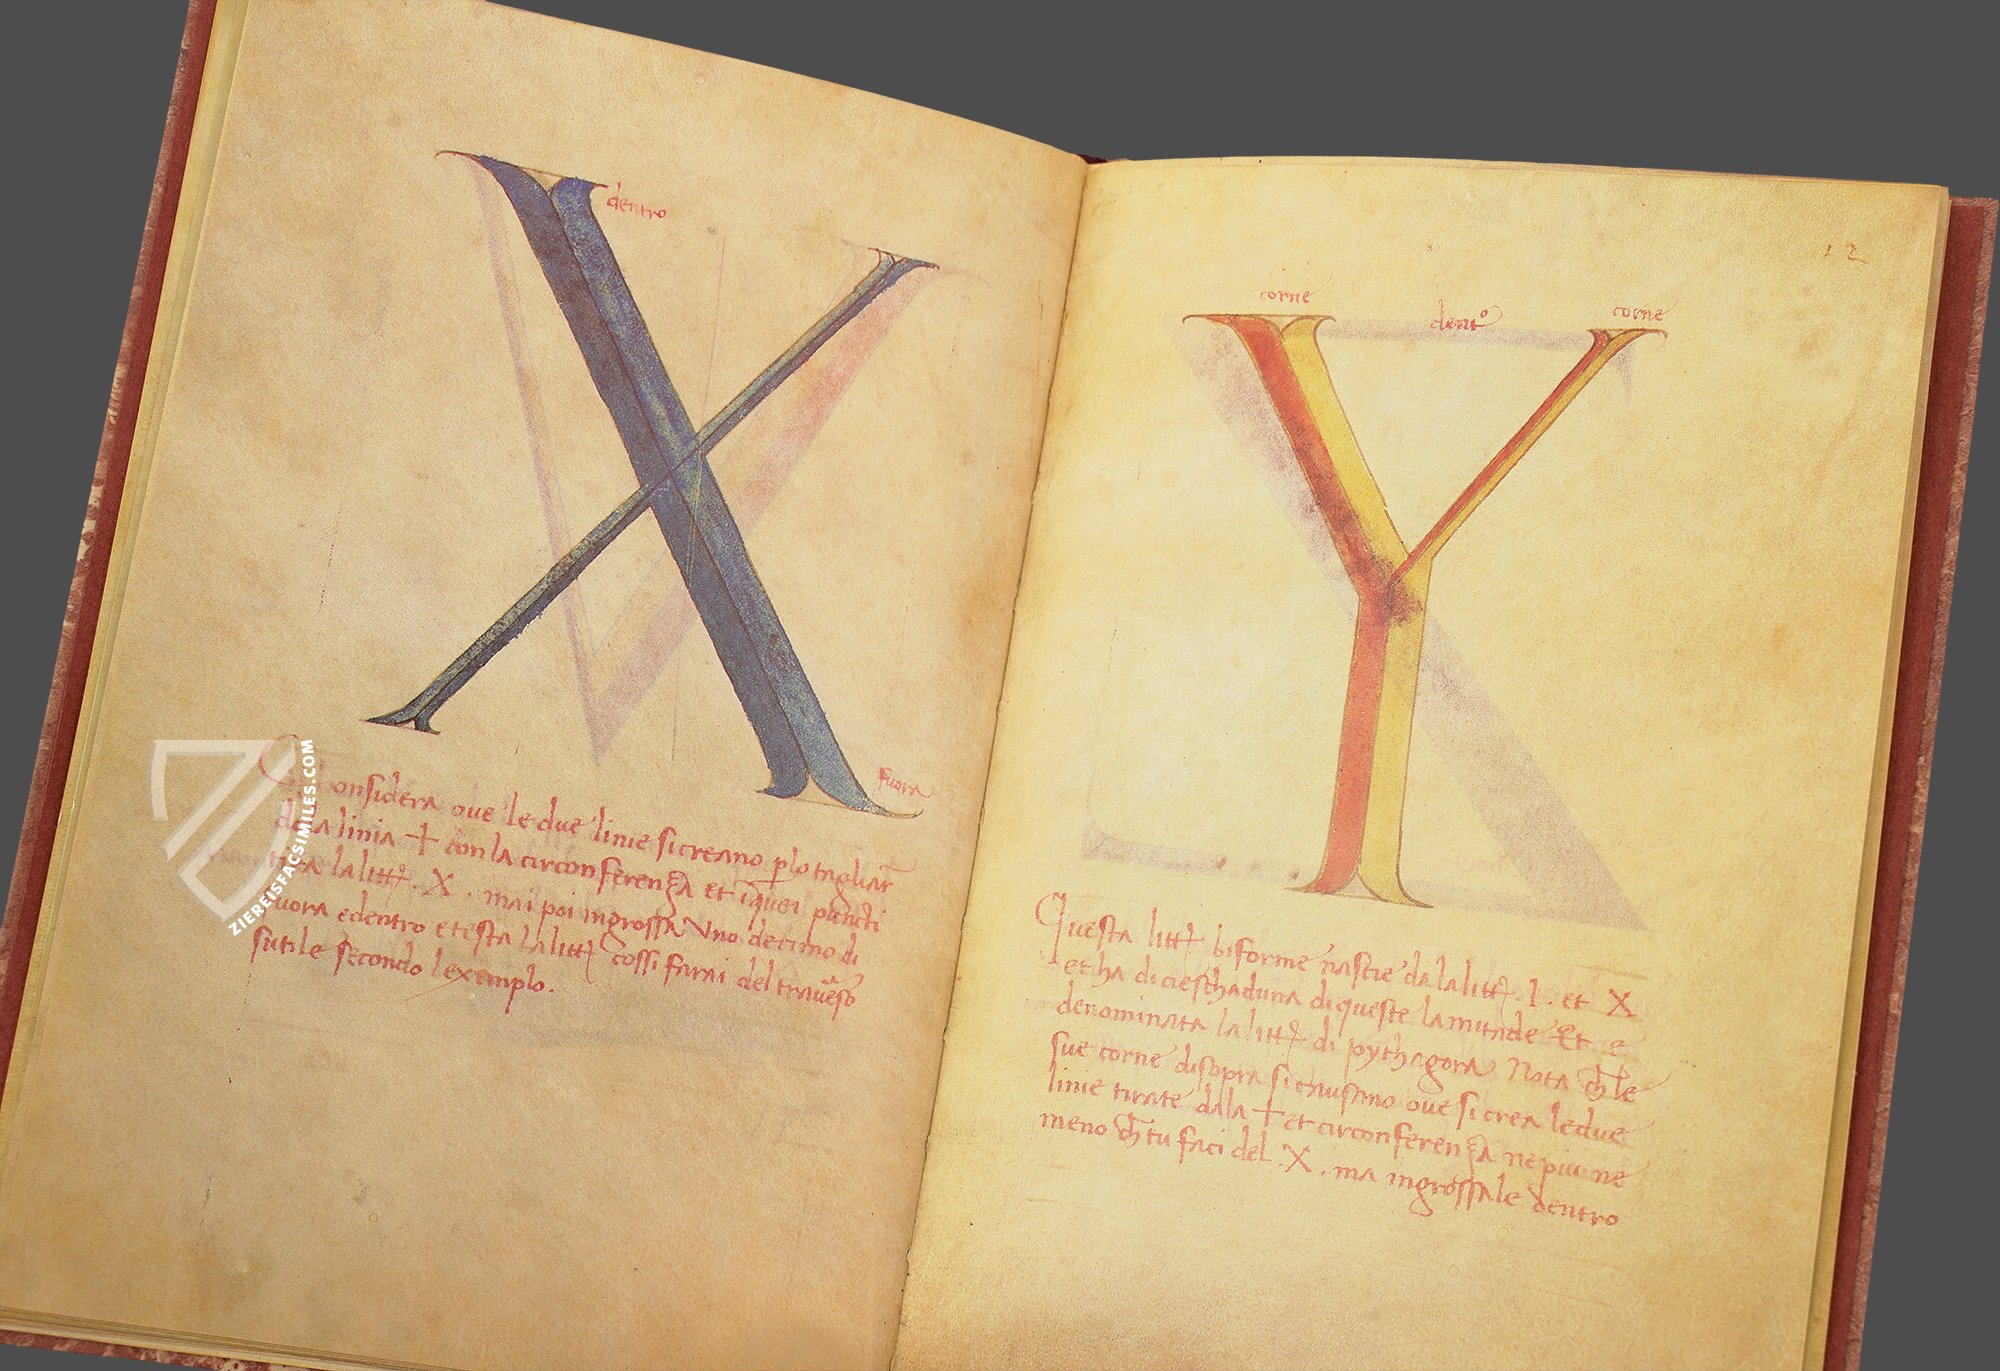 X
dentro
fuora
Considera oue le due linie si creano p lo tagliar
dela linia + con la circonferenza et i quei puncti
tira la litt . X . mai poi ingrossa Vno decimo di
fuora e dentro e testa la litt cossi farai del trauerso
sutile secondo lexemplo.
ZIEREISFACSIMILES.COM
12
corne
dento
corne
Y
Questa litt biforme nascie da la litt . I . et X
et ha di cieschaduna di queste la mitade Et e
denominata la litt di pythagora Nota ch le
sue corne disopra si chausano oue si crea le due
linie tirate dala + et circonferenza ne piu ne
meno ch tu faci del . X . ma ingrossale dentro